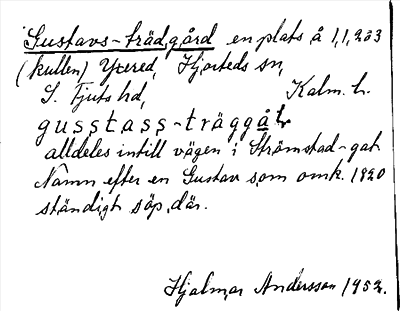 Gustavs-trädgård en plats å 1,1,233
(kullen) Yxered, Hjorteds sn,
S. Tjusts hd, Kalm. l.
gusstass-träggål
alldeles intill vägen i Strömstad-gat.
Namn efter en Gustav som omk. 1820
ständigt söp där.
Hjalmar Andersson 1952.